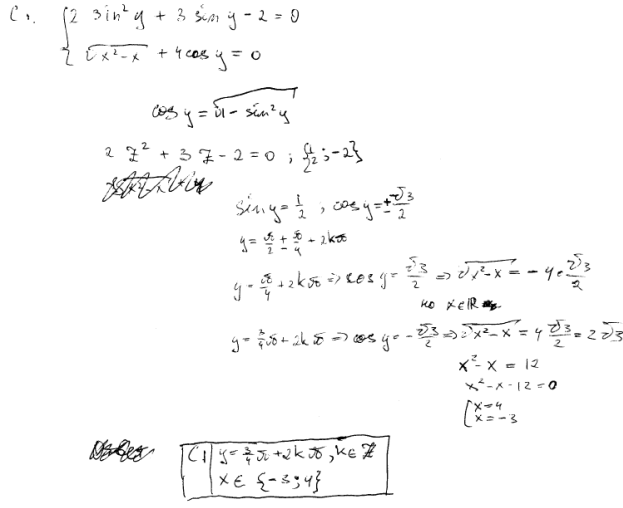 C1. { 2 sin² y + 3 sin y - 2 = 0
{ √x²-x + 4 cos y = 0
cos y = √1 - sin² y
2 z² + 3 z - 2 = 0 ; {1/2 ; -2}
sin y = 1/2 , cos y = ±√3/2
y = π/2 ± π/4 + 2kπ
y = π/4 + 2kπ => cos y = √3/2 => √x²-x = -4·√3/2
но x∈ℝ
y = 3/4 π + 2kπ => cos y = -√3/2 => √x²-x = 4 √3/2 = 2√3
x² - x = 12
x² - x - 12 = 0
[ x = 4
[ x = -3
C1 | y = 3/4 π + 2kπ, k∈ℤ
x ∈ {-3; 4}